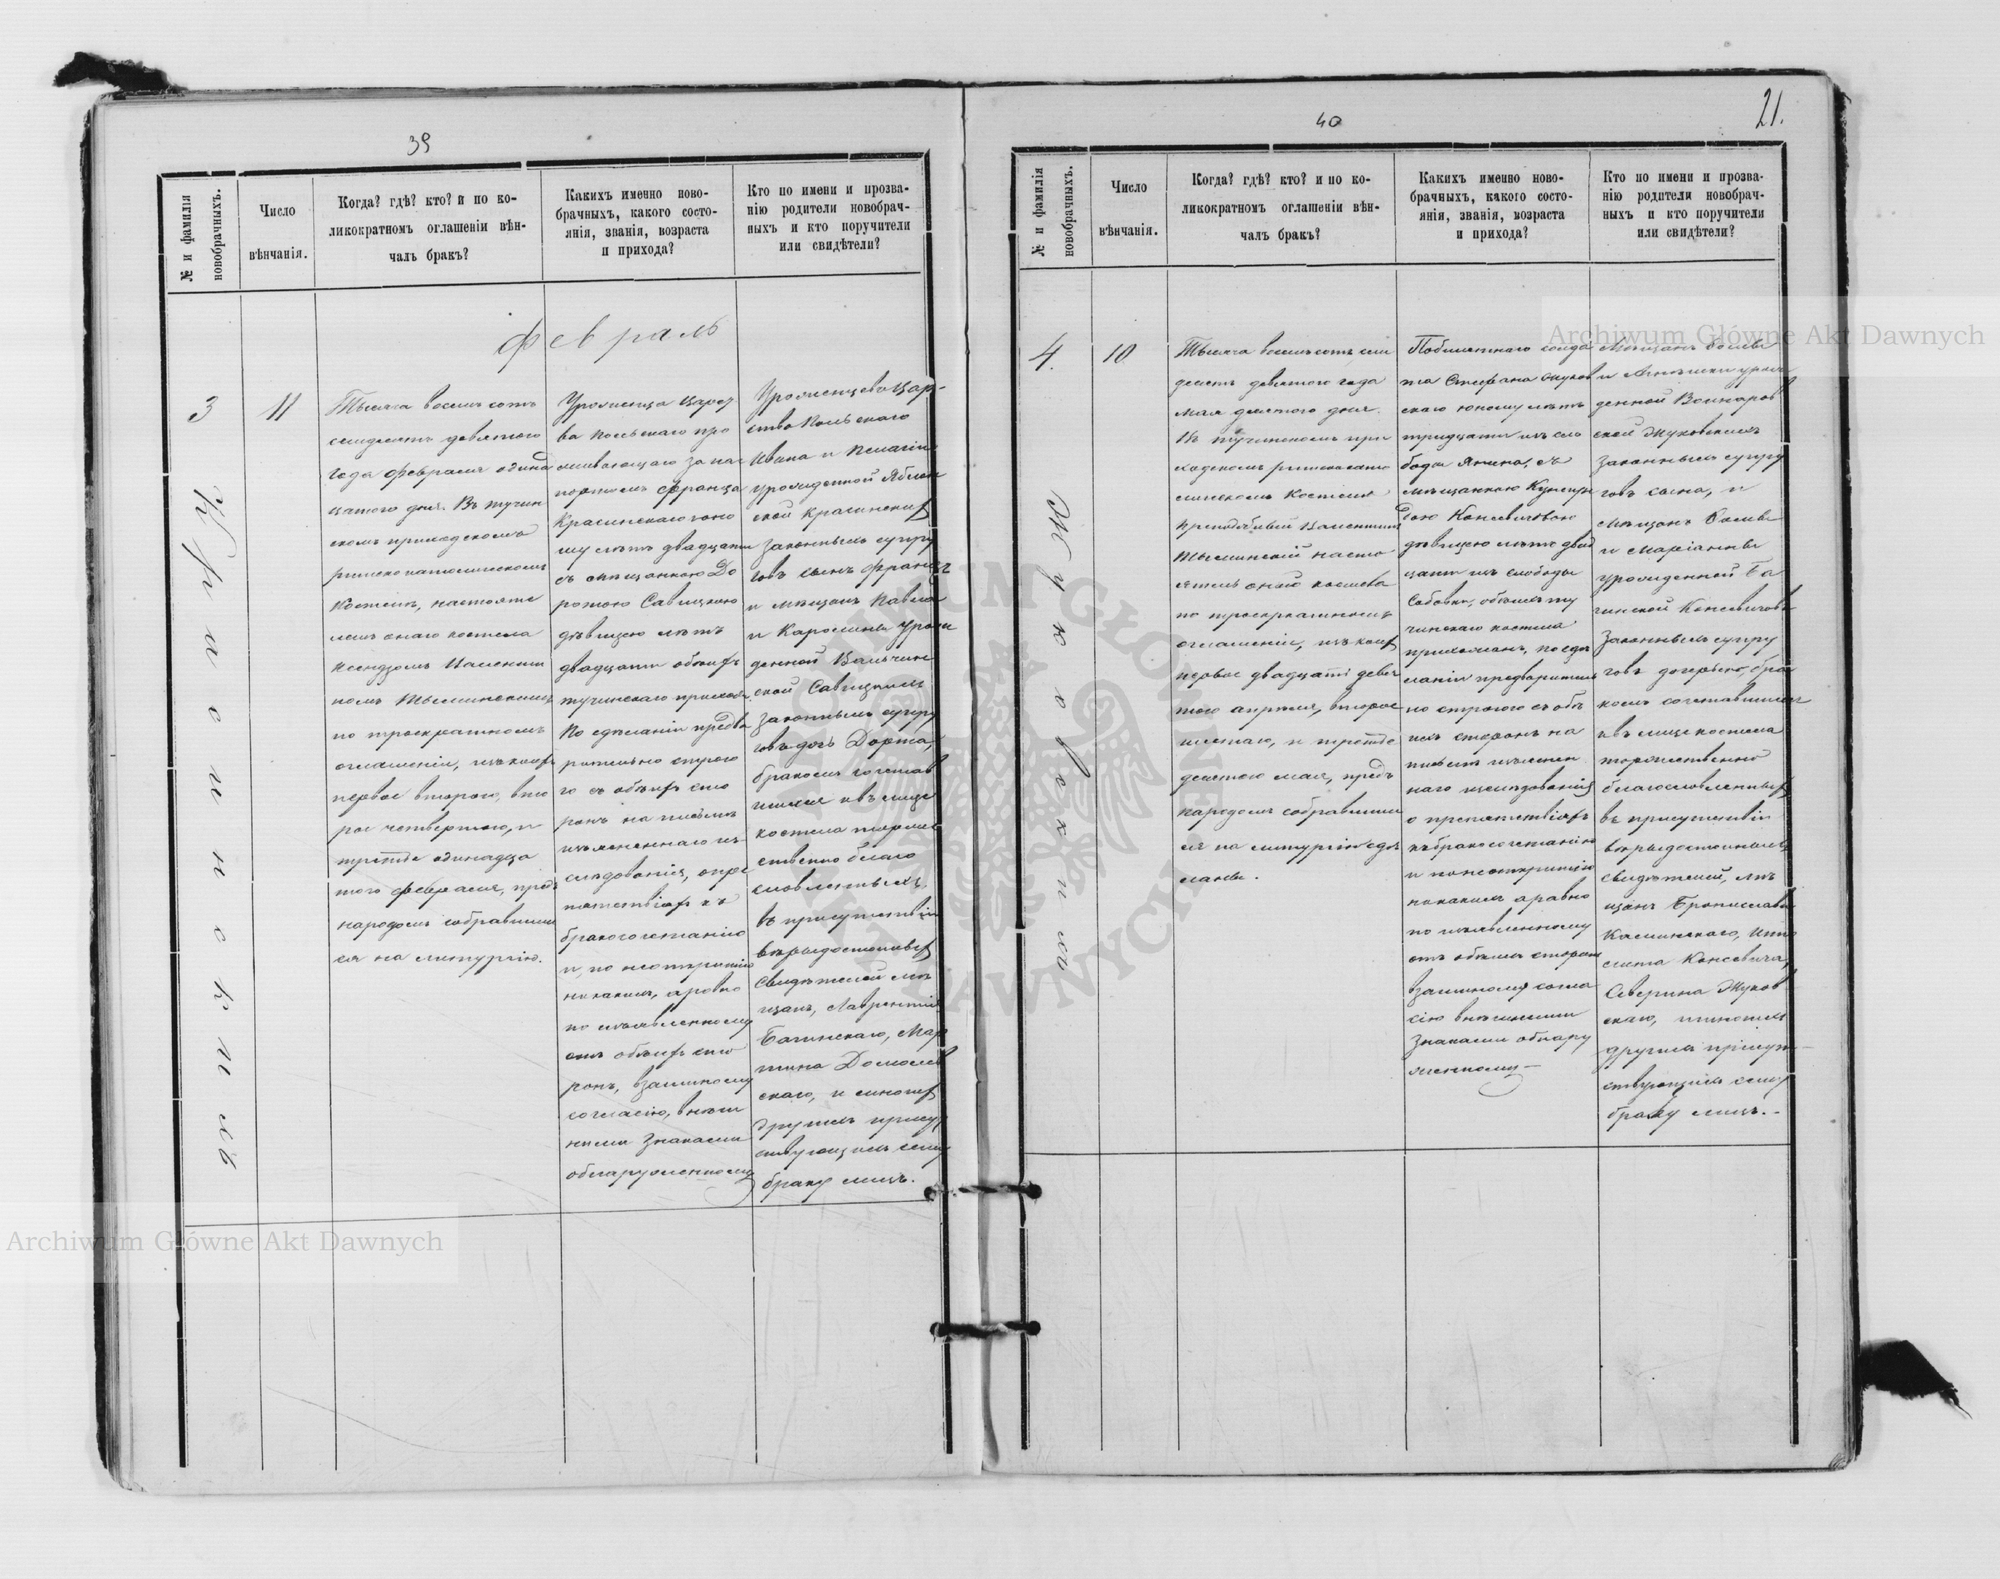 39
№ и фамилія новобрачныхъ.
Число вѣнчанія.
Когда? гдѣ? кто? и по ко-
ликократномъ оглашеніи вѣн-
чалъ бракъ?
Какихъ именно ново-
брачныхъ, какого состо-
янія, званія, возраста
и прихода?
Кто по имени и прозва-
нію родители новобрач-
ныхъ и кто поручители
или свидѣтели?
Февраль
3
Красинскимъ
11
Тысяча восемь сотъ
семдесятъ девятого
года Февраля одинад
цатого дня. Въ тучин
скомъ приходскомъ
римскокатолическомъ
Костелѣ, настояте
лемъ онаго костела
Ксендзомъ Валентин
по троекратномъ
оглашеніи, изъ коихъ
первое второго, вто
рое четвертого, и
третье одинадца
того февраля, предъ
народомъ собравшим
ся на литургію.
Уроженца Царст
ва Польскаго про
живающаго за пас
портомъ Франца
Красинскаго юно
шу лѣтъ двадцати
съ мѣщанкою До
ротою Савицкою
дѣвицею лѣтъ
двадцати обоихъ
тучинскаго прихода,
По сдѣланіи предва
рительно строго
го съ обоихъ сто
ронъ на письмѣ
изъясненнаго из
слѣдованія, о пре
пятствіяхъ къ
бракосочетанію
и, по неоткрытію
никакихъ, а равно
по изъявленному
отъ обоихъ сто
ронъ, взаимному
согласію, внѣш
ними знаками
обнаруженному
Уроженцево Цар-
ства Польскаго
Ивана и Пелагіи
урожденной Яблон
ской Красинскихъ
законныхъ супру
говъ сынъ Францъ
и мѣщанъ Павла
и Каролины урож
денной
ской Савицкихъ
законныхъ супру
говъ дочь Дорота,
бракомъ сочетав
шихся и въ лицѣ
костела торже
ственно благо
словленныхъ,
въ присутствіи
вѣрыдостойныхъ
Свидѣтелей мѣ
щанъ, Лаврентія
Багинскаго, Мар
тина
скаго, и многихъ
другихъ присут
ствующихъ сему
браку лицъ.
40
21.
№ и фамилія новобрачныхъ.
Число вѣнчанія.
Когда? гдѣ? кто? и по ко-
ликократномъ оглашеніи вѣн-
чалъ бракъ?
Какихъ именно ново-
брачныхъ, какого состо-
янія, званія, возраста
и прихода?
Кто по имени и прозва-
нію родители новобрач-
ныхъ и кто поручители
или свидѣтели?
4.
Жуковскимъ
10
Тысяча восемьсотъ сем
десятъ девятого года
мая десятого дня.
Въ тучинскомъ при
ходскомъ римскокато
лическомъ Костелѣ
Преподобный Валентинъ
насто
ятель онаго костела
по троекратномъ
оглашеніи, изъ коихъ
первое двадцать девя
того апрѣля, второе
шестаго, и третье
десятого мая, предъ
народомъ собравшим
ся на литургію сдѣ
ланы.
солда
та Стефана Жуков
скаго юношу лѣтъ
тридцати изъ сло
боды Янина, съ
мѣщанкою Кунегун
дою Концевичовою
дѣвицею лѣтъ двад
цати изъ слободы
обоихъ ту
чинскаго костела
прихожанъ, по сдѣ
ланіи предваритель
но строгого съ обо
ихъ сторонъ на
письмѣ изъяснен
наго изслѣдованія
о препятствіяхъ
къ бракосочетанію
и по неоткрытію
никакихъ а равно
по изъявленному
отъ обоихъ сторонъ
взаимному согла
сію внѣшними
знаками обнару
женному
Мѣщанъ
и урож
денной
ской Жуковскихъ
законныхъ супру
говъ сына, и
Мѣщанъ
и Маріанны
урожденной Ба
гинской Концевичовъ
Законныхъ супру
говъ дочерью, бра
комъ сочетавшихся
и въ лицѣ костела
торжественно
благословленныхъ
въ присутствіи
вѣрыдостойныхъ
Свидѣтелей, мѣ
щанъ Брониславъ
Каминскаго, Иппо
лита Концевича,
Северина Жуков
скаго, и многихъ
другихъ присут-
ствующихъ сему
браку лицъ.-
Archiwum Główne Akt Dawnych
Archiwum Główne Akt Dawnych
ARCHIWUM GŁÓWNE AKT DAWNYCH